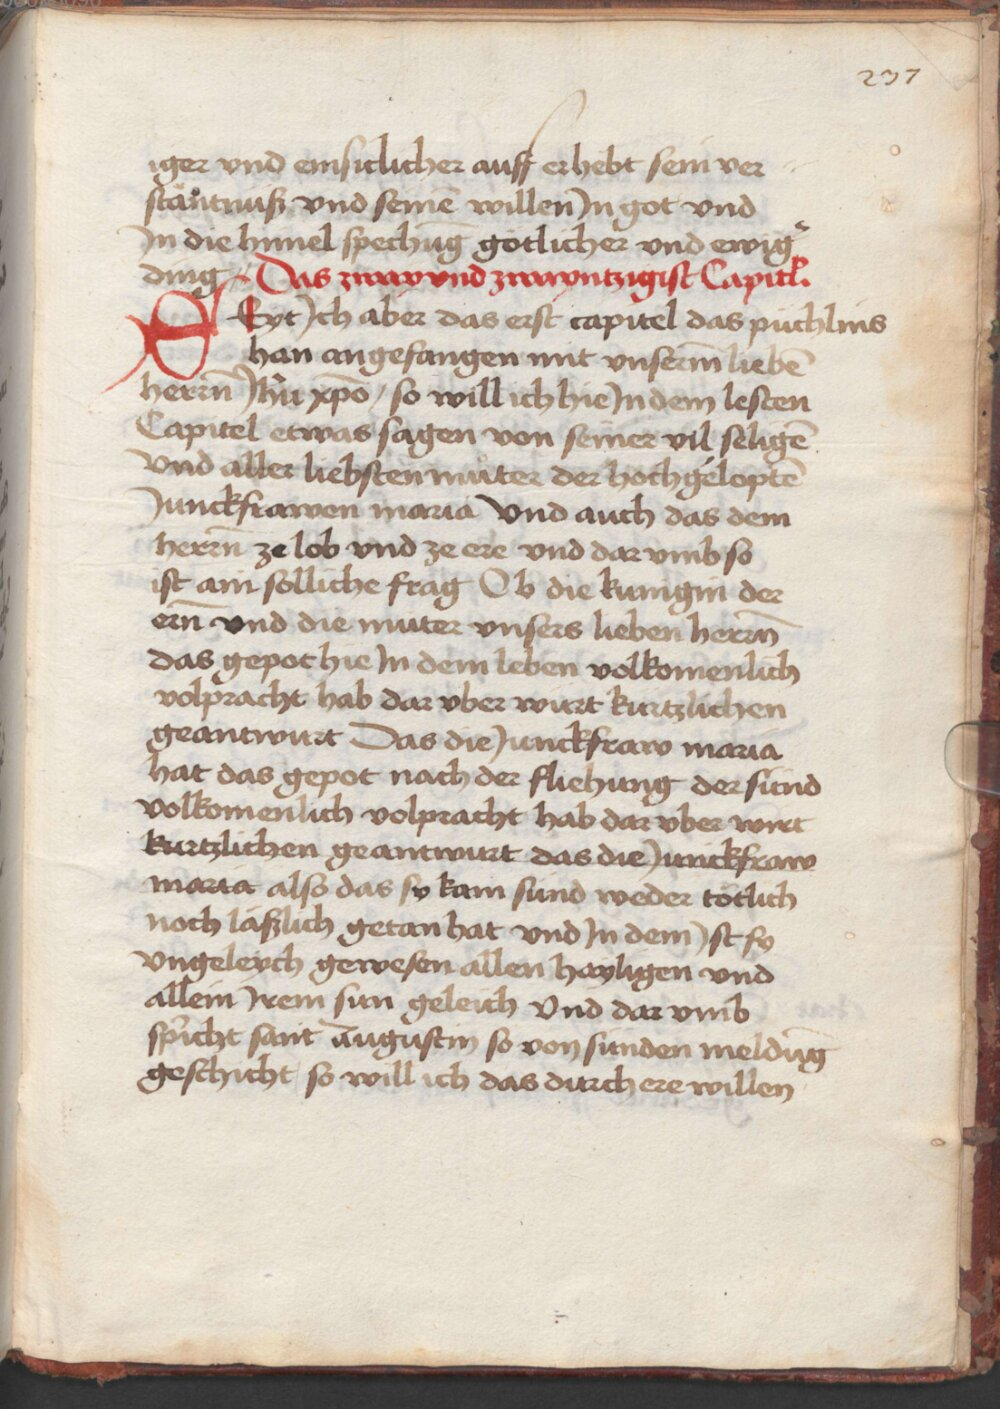 237
iger vnd einsitlicher auff erhebt sein ver
stäntnuß vnd seinē willen Jn got vnd
Jn die himel spechūg götlicher vnd ewig̉
ding Das zway vnd zwayntzigist Capitl̉.
SEyt Jch aber das erst capitel das püchlins
han angefangen mit vnserm̄ liebē
herrn̄ Jhū xp̄o / so will ich hie Jn dem lesten
Capitel etwas sagen von seiner vil seligē
Vnd aller liebsten můter der hoch geloptē
Junckfrawen maria Vnd auch das dem
herrn̄ ze lob vnd ze ere vnd dar vmb so
ist ain solliche frag Ob die kunigin der
ern̄ vnd die muter vnsers lieben herrn̄
das gepot hie Jn dem leben volkomenlich
volpracht hab dar vber wurt kurtzlichen
geantwurt Das die Junckfraw maria
hat das gepot nach der fliehung der sünd
volkomenlich volpracht hab dar vber wirt
kurtzlichen geantwurt das die Junckfraw
maria also das sy kain sünd weder tötlich
noch läßlich getan hat vnd Jn dem Jst sy
vngeleych gewesen allen hayligen vnd
allein Jrem sun geleich Vnd dar vmb
spricht sant augustin so von sünden meldūg
geschicht so will ich das durch ere willen